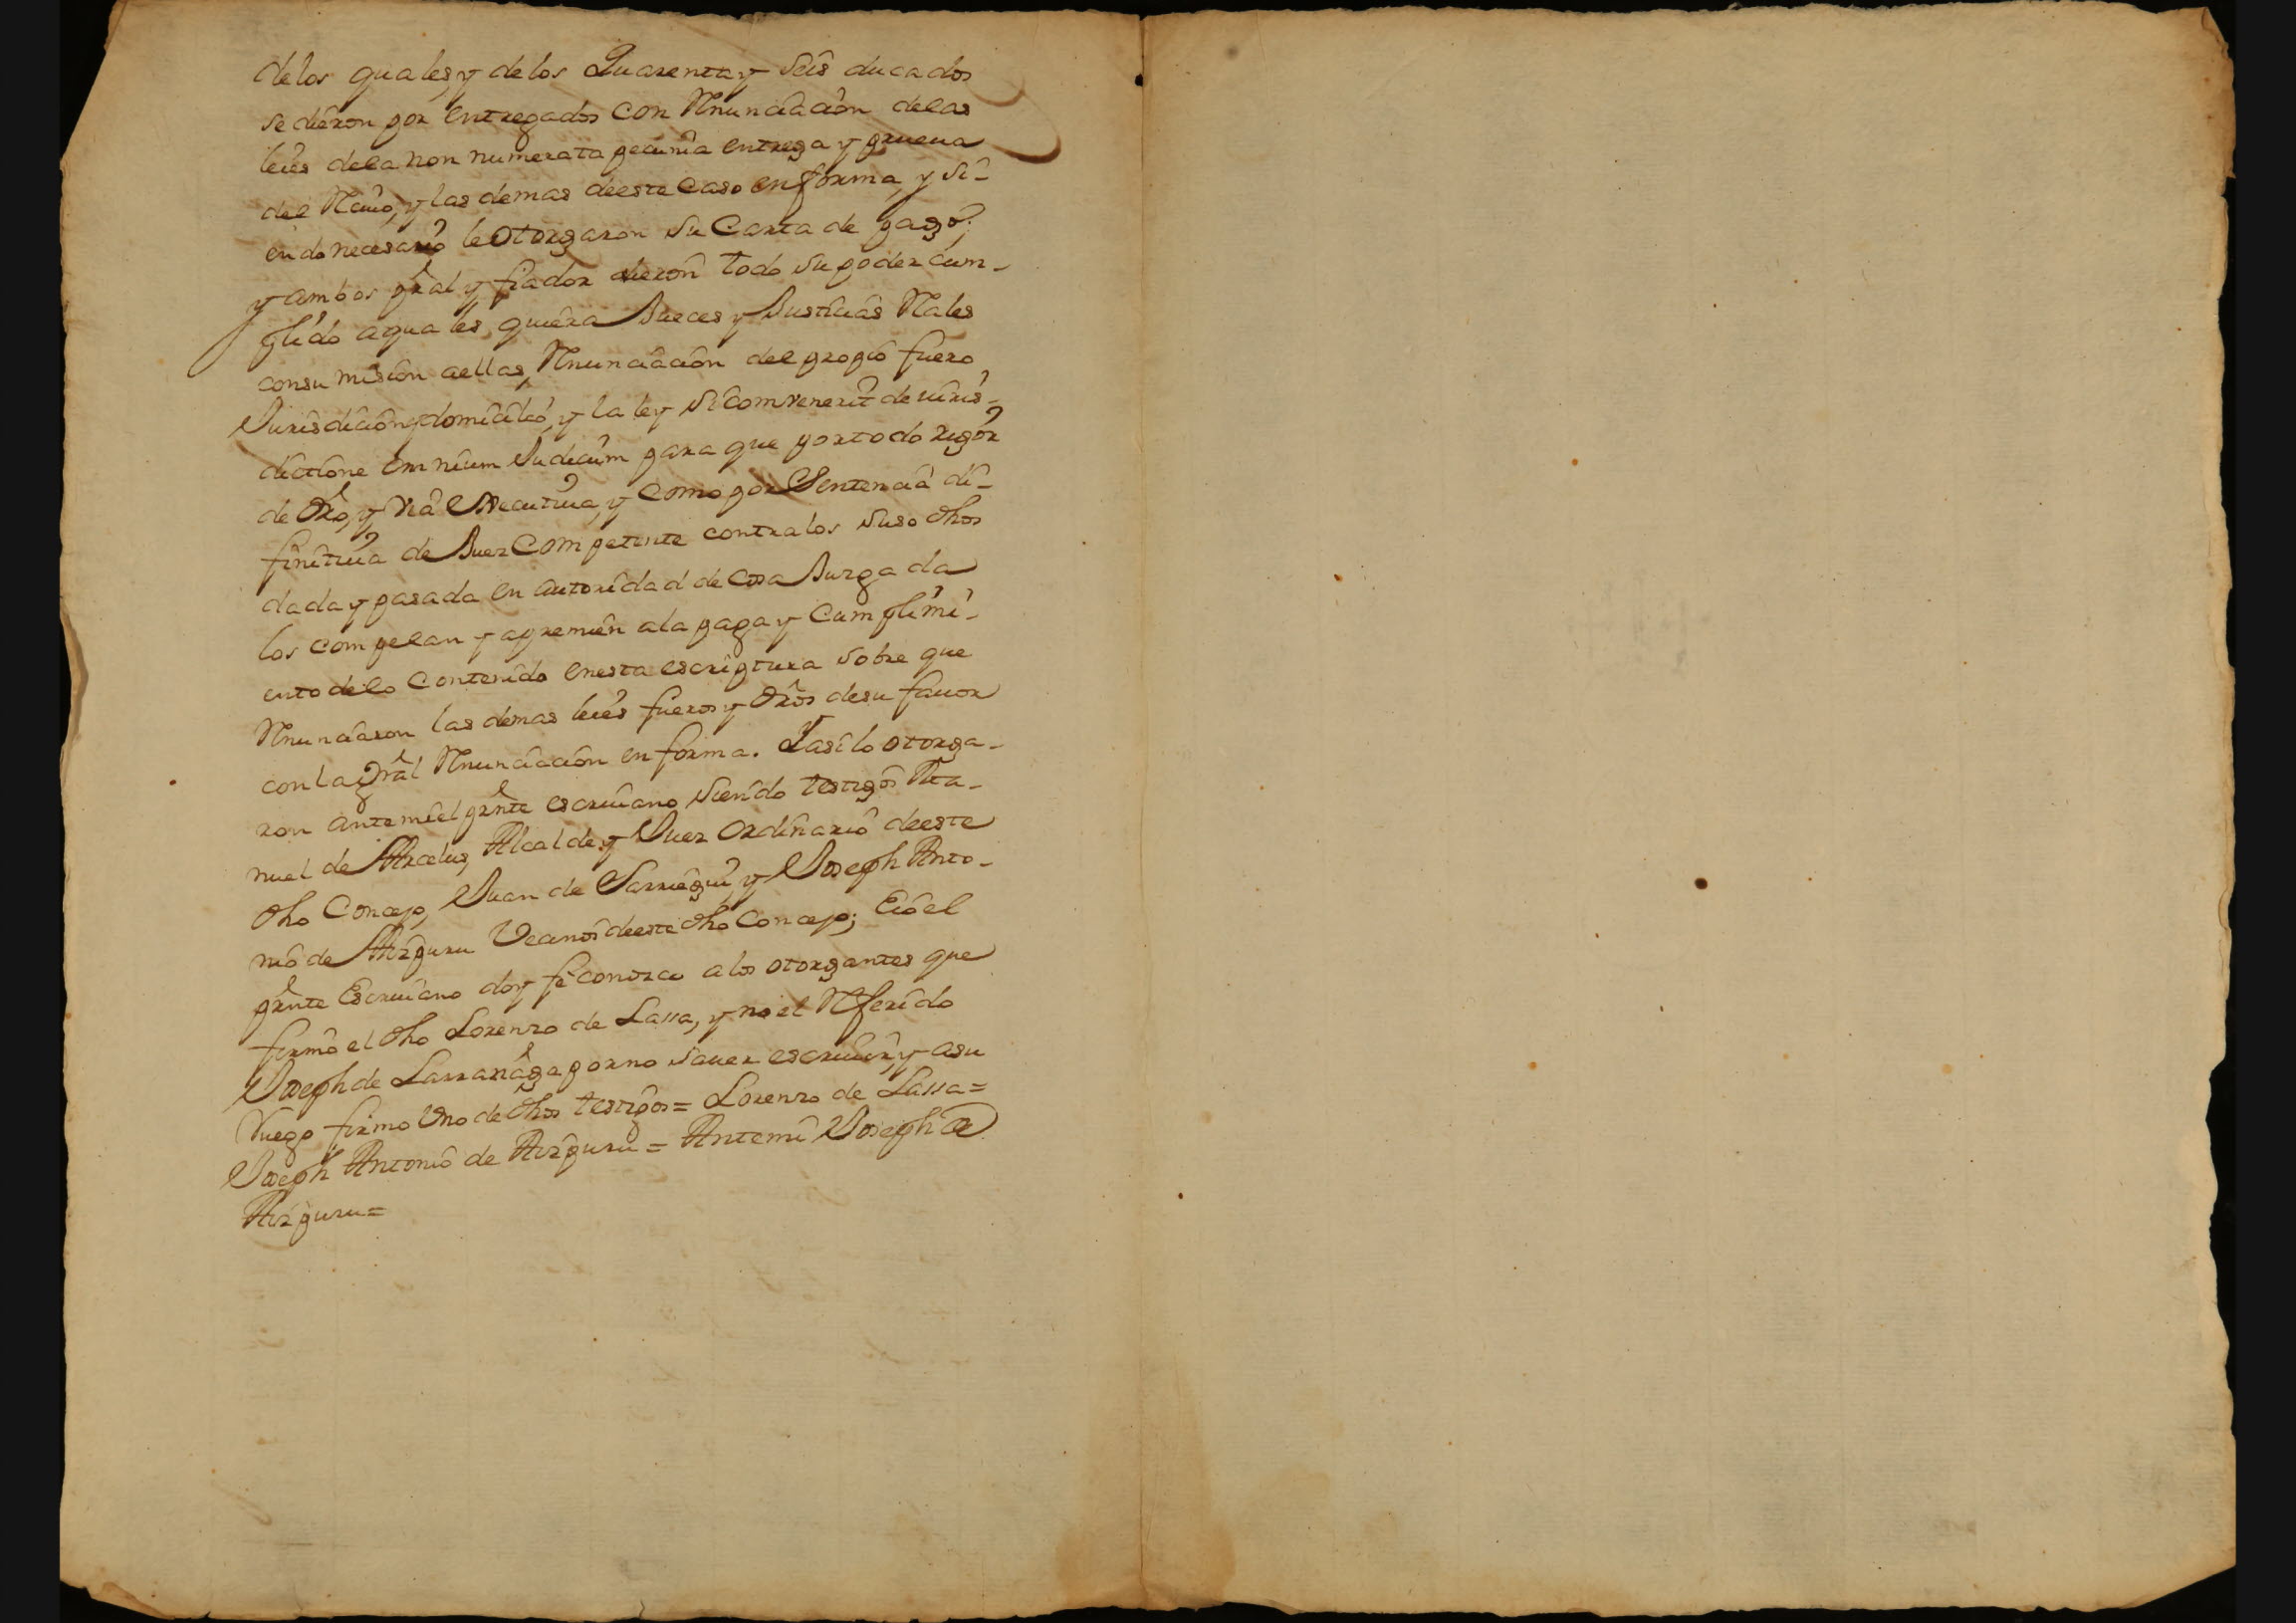 delos quales, y delos Quarenta y seis ducados
se dieron por entregados con Renunciacion delas
leies dela non numerata pecunia entrega y prueua
del Reciuo, y las demas deeste caso en forma, y si-
endo necesario le otorgaron su Carta de pago;
y ambos pral y fiador dieron todo su poder cum-
plido aquales, quiera Jueces y Justicias Rales
consu mision aellas, Renunciacion del propio fuero
Jurisdicion, y domicilio, y la ley si comvenerit de iuris-
dictione omnium Judicum para que por todo rigor
de dro, y via executiua, y como por Sentencia di-
finitiua de Juez Competente contra los suso dhos
dada y pasada en autoridad de cosa Juzgada
los compelan y apremien ala paga y Cumplimi-
ento delo Contenido enesta escriptura sobre que
Renunciaron las demas leies fueros y dros desu fauor
con la gral Renunciacion en forma. Y asi lo otorga-
ron ante mi el prnte escriuano siendo testigos Ma-
nuel de Arcelus, Alcalde y Juez Ordinario deeste
dho Concejo, Juan de Sarriegui, y Joseph Anto-
nio de Aizpuru Vecinos deeste dho Concejo; E io el
prnte Escriuano doy fe conozco a los otorgantes que
firmo el dho Lorenzo de Lassa, y no el Referido
Joseph de Larrañaga por no sauer escriuir, y asu
Ruego firmo Uno de dhos testigos = Lorenzo de Lassa =
Joseph Antonio de Aizpuru = Antemi Joseph de
Aizpuru =